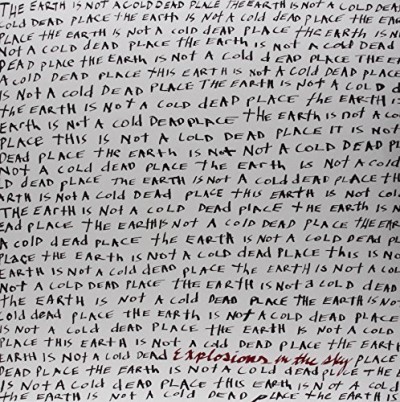 THE EARTH IS NOT A COLD DEAD PLACE THE EARTH IS NOT A COLD DEAD
COLD DEAD PLACE THE EARTH IS NOT A COLD DEAD PLACE THE EAR
PLACE THE EARTH IS NOT A COLD DEAD PLACE THE EARTH IS NOT A
NOT A COLD DEAD PLACE THE EARTH IS NOT A COLD DEAD
DEAD PLACE THE EARTH IS NOT A COLD DEAD PLACE THE EF
A COLD DEAD PLACE THIS EARTH IS NOT A COLD DEAD PLAC
IS NOT A COLD DEAD PLACE THE EARTH IS NOT A COLD D
THE EARTH IS NOT A COLD DEAD PLACE THE EARTH I
EARTH IS NOT A COLD DEAD PLACE THE EARTH IS NOT A CO
PLACE THIS IS NOT A COLD DEAD PLACE IT IS NOT
DEAD PLACE THE EARTH IS NOT A COLD DEAD PL
NOT A COLD DEAD PLACE THE EARTH IS NOT A COLD
D DEAD PLACE THE EARTH IS NOT A COLD DEAD PLACE THE
RTH IS NOT A COLD DEAD PLACE THIS EARTH IS NOT COL
THE EARTH IS NOT A COLD DEAD PLACE THE EARTH IS N
EAD PLACE THE EARTH IS NOT A COLD DEAD PLACE THE EAR
A COLD DEAD PLACE THE EARTH IS NOT A COLD DEAD PL
PLACE THE EARTH IS NOT A COLD DEAD PLACE THIS IS NO
EARTH IS NOT A COLD DEAD PLACE THE EARTH IS NOT A COL
NOT A COLD DEAD PLACE THE EARTH IS NOT A COLD DEAD
THE EARTH IS NOT A COLD DEAD PLACE THE EARTH IS
COLD DEAD PLACE THE EARTH IS NOT A COLD DEAD PLACE
IS NOT A COLD DEAD PLACE THE EARTH IS NOT A COLD
PLACE THIS EARTH IS NOT A COLD DEAD PLACE THE EARTH
EARTH IS NOT A COLD DEAD Explosions in the sky PLACE
DEAD PLACE THE EARTH IS NOT A COLD DEAD PLACE THE EA
NOT A COLD DEAD PLACE THIS EARTH IS NOT A COLD
THE EARTH IS NOT A COLD DEAD PLACE THE EARTH IS